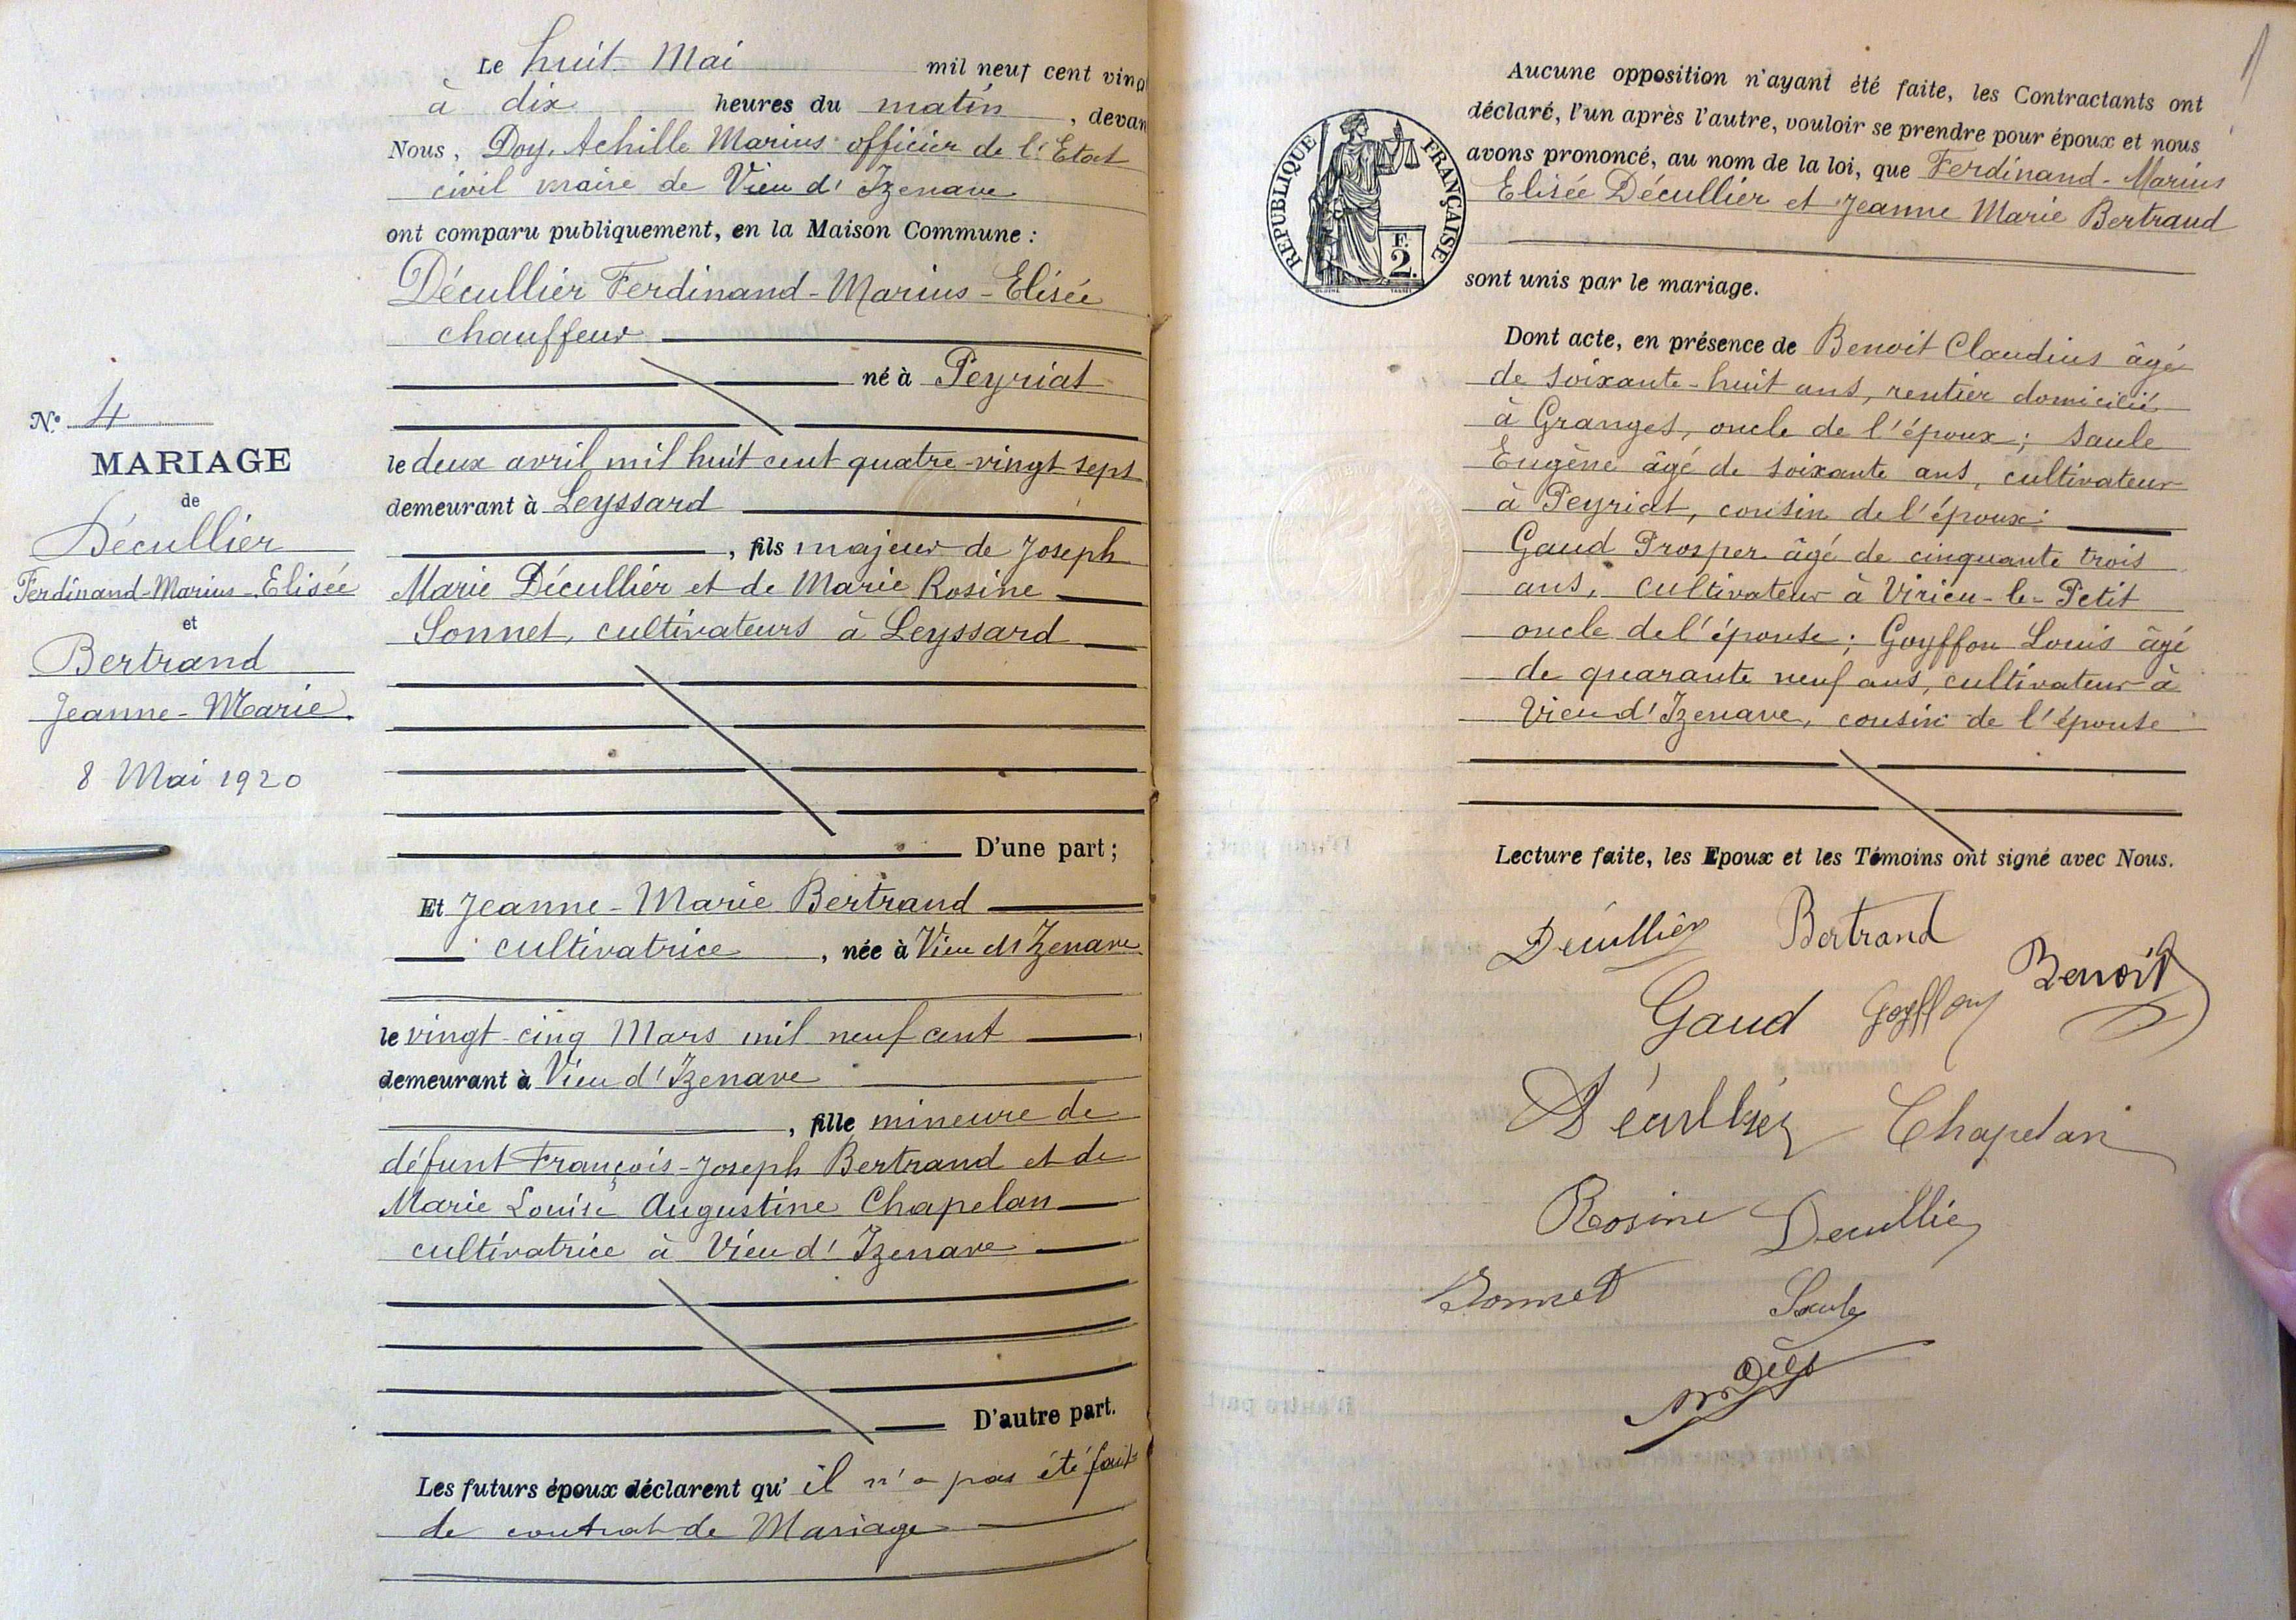 N° 4
MARIAGE
de
Décullier
Ferdinand-Marius-Elisée
et
Bertrand
Jeanne-Marie.
8 Mai 1920
Le huit Mai mil neuf cent ving
à dix heures du matin, devan
Nous, Doy, Achille Marius officier de l'Etat
civil maire de Vieu d'Izenave
ont comparu publiquement, en la Maison Commune :
Décullier Ferdinand-Marius-Elisée
chauffeur
né à Peyriat
le deux avril mil huit cent quatre-vingt sept
demeurant à Leyssard
, fils majeur de Joseph
Marie Décullier et de Marie Rosine
Sonnet, cultivateurs à Leyssard
D'une part ;
Et Jeanne-Marie Bertrand
cultivatrice, née à Vieu d'Izenave
le vingt-cinq Mars mil neuf cent
demeurant à Vieu d'Izenave
, fille mineure de
défunt François-Joseph Bertrand et de
Marie Louise Augustine Chapelan
cultivatrice à Vieu d'Izenave
D'autre part.
Les futurs époux déclarent qu'il n'a pas été fait
de contrat de Mariage
RÉPUBLIQUE FRANÇAISE
F.
2.
Aucune opposition n'ayant été faite, les Contractants ont
déclaré, l'un après l'autre, vouloir se prendre pour époux et nous
avons prononcé, au nom de la loi, que Ferdinand-Marius
Elisée Décullier et Jeanne Marie Bertrand
sont unis par le mariage.
Dont acte, en présence de Benoit Claudius âgé
de soixante-huit ans, rentier domicilié
à Granges, oncle de l'époux ; Saule
Eugène âgé de soixante ans, cultivateur
à Peyriat, cousin de l'époux ;
Gaud Prosper âgé de cinquante trois
ans, cultivateur à Virieu-le-Petit
oncle de l'épouse ; Goyffon Louis âgé
de quarante neuf ans, cultivateur à
Vieu d'Izenave, cousin de l'épouse
Lecture faite, les Epoux et les Témoins ont signé avec Nous.
Décullier Bertrand
Benoit
Gaud Goyffon
Décullier Chapelan
Rosine Decullier
Sonnet Saule